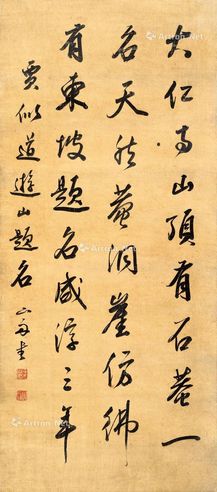 大仁寺山頂有石菴一
名天然菴洞崖仿佛
有東坡題名咸淳三年
賈似道遊山題名 山舟書